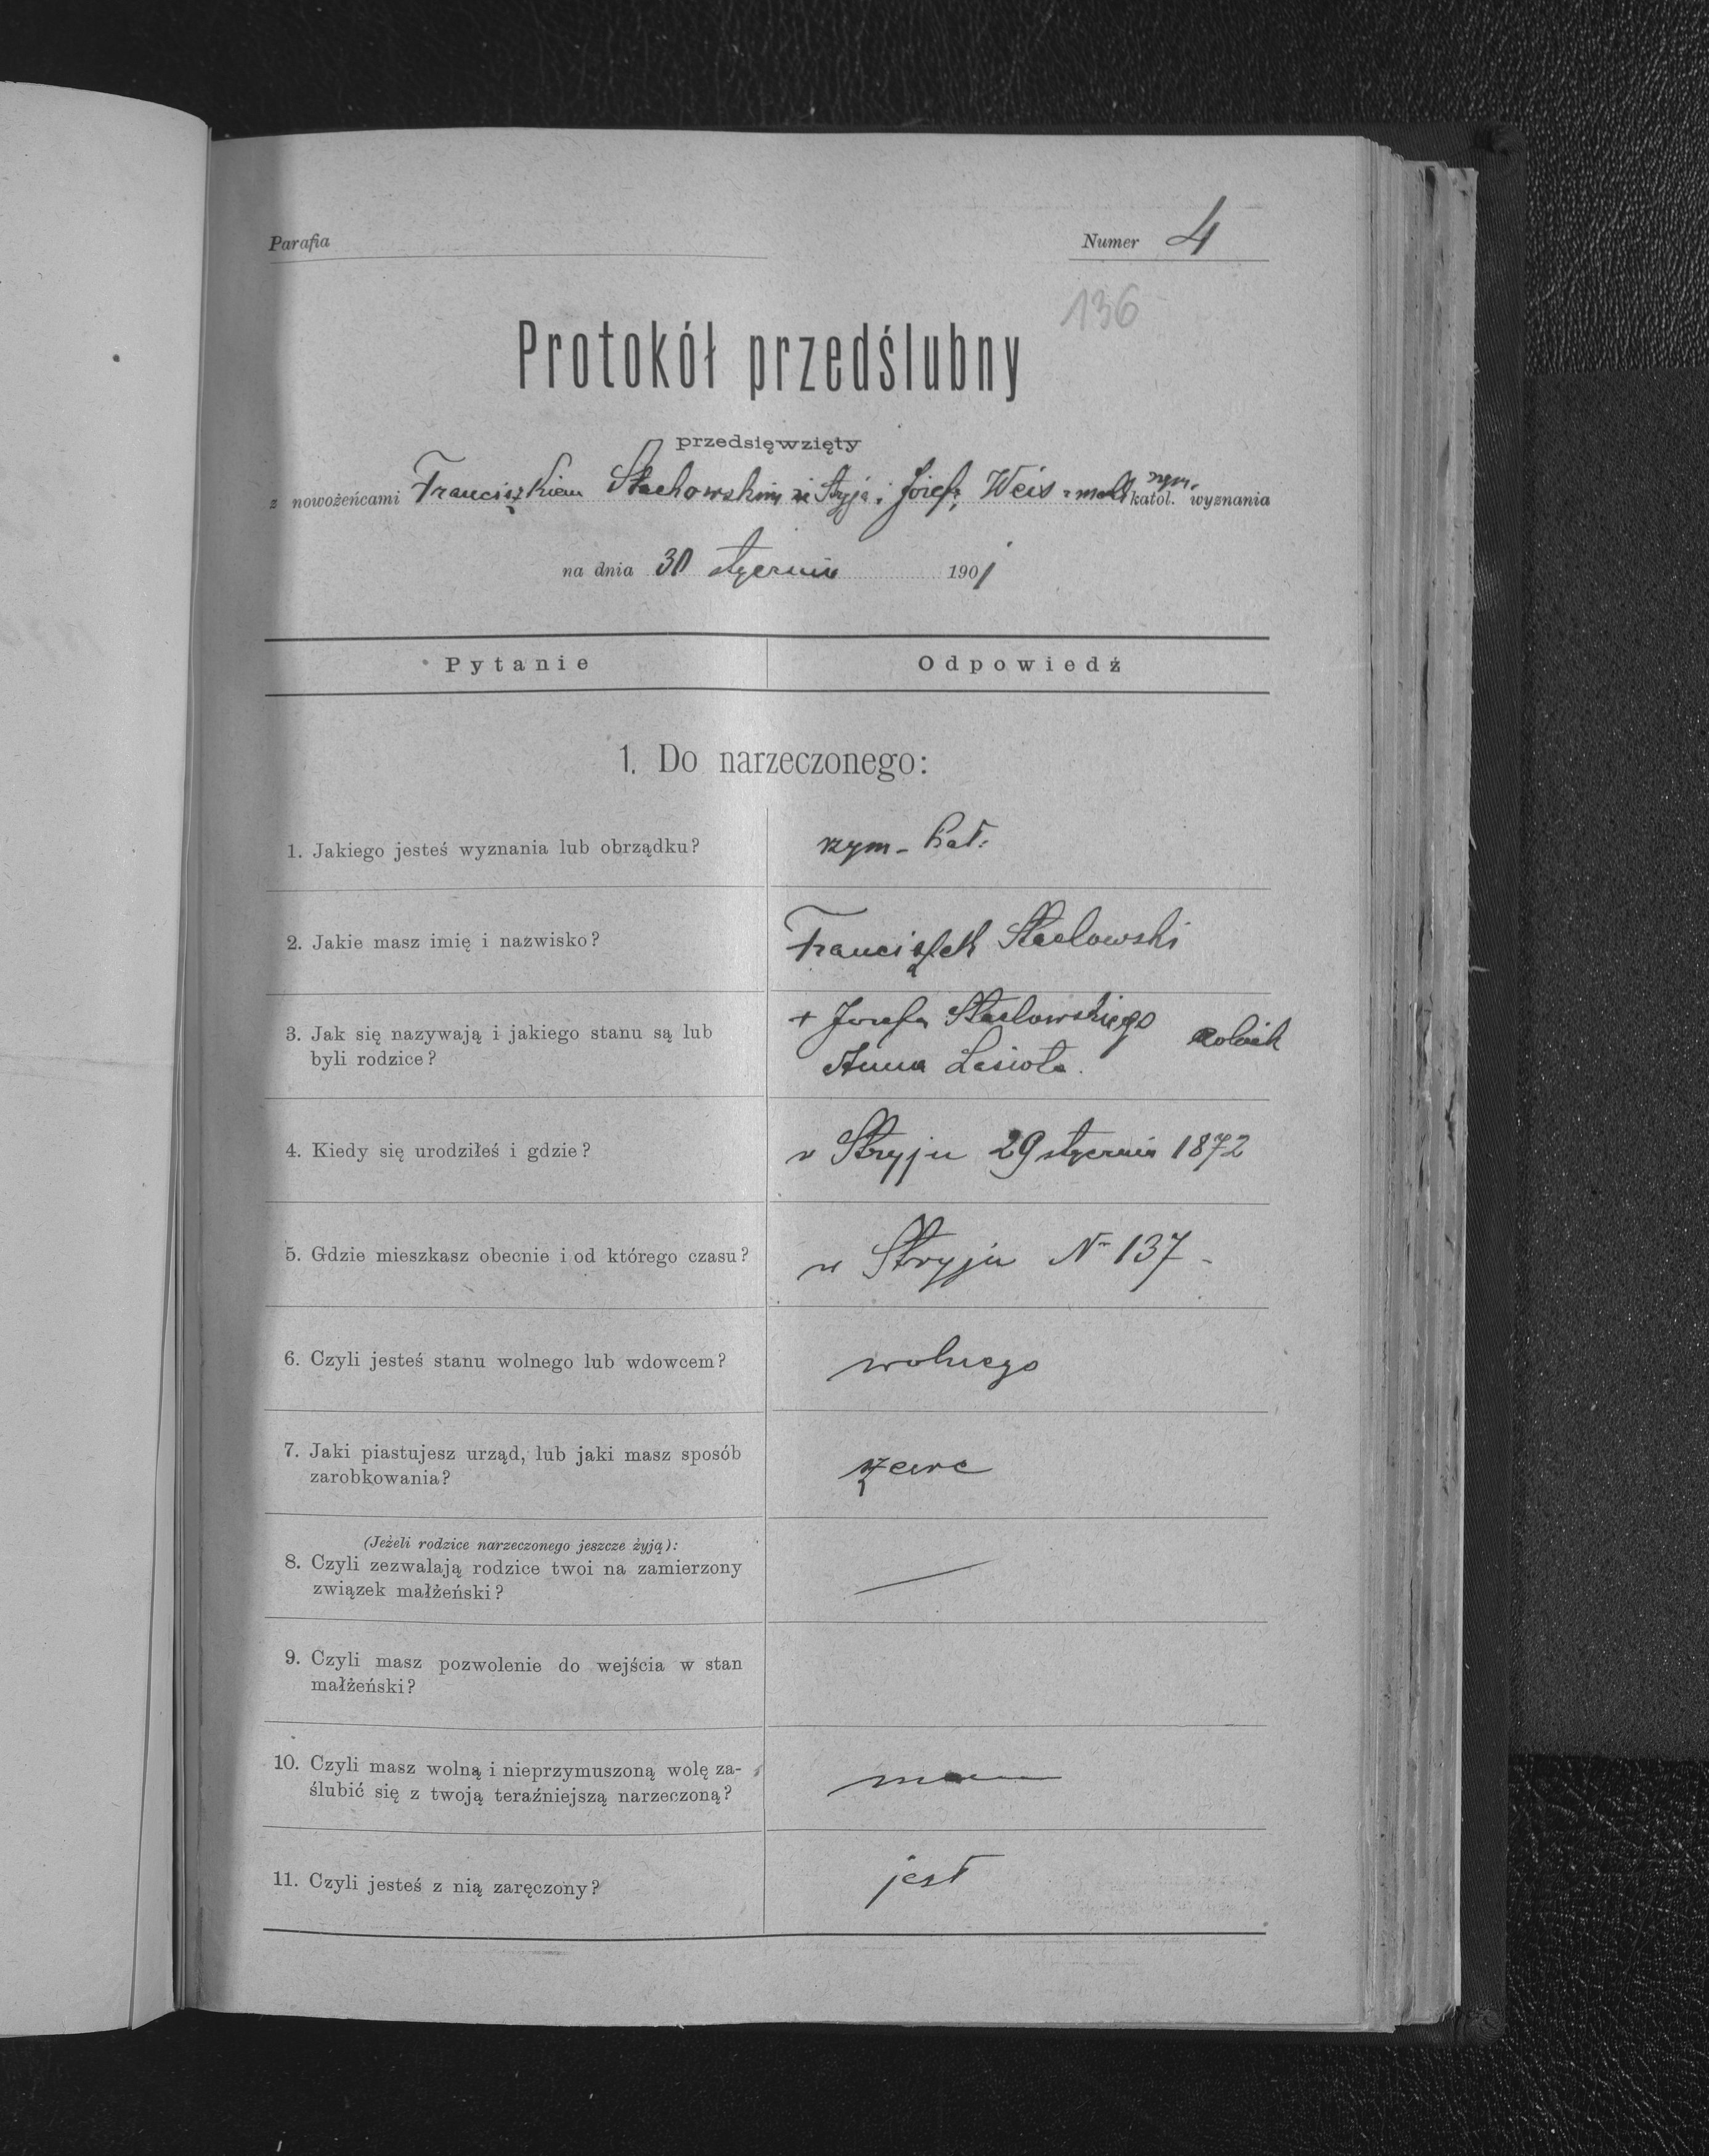 Parafia
Numer 4
136
Protokół przedślubny
przedsięwzięty
z nowożeńcami Franciszkiem Stachowskim ze Stryja i Józefą Weis rzym. katol. wyznania
na dnia 30 stycznia 1901
Pytanie Odpowiedź
1. Do narzeczonego:
1. Jakiego jesteś wyznania lub obrządku? rzym-kat.
2. Jakie masz imię i nazwisko? Franciszek Stachowski
3. Jak się nazywają i jakiego stanu są lub
byli rodzice?
+ Józefa Stachowskiego rolnik
Anna
4. Kiedy się urodziłeś i gdzie? w Stryju 29 stycznia 1872
5. Gdzie mieszkasz obecnie i od którego czasu? w Stryju Nr 137 -
6. Czyli jesteś stanu wolnego lub wdowcem? wolnego
7. Jaki piastujesz urząd, lub jaki masz sposób
zarobkowania?
szewc
(Jeżeli rodzice narzeczonego jeszcze żyją):
8. Czyli zezwalają rodzice twoi na zamierzony
związek małżeński?
—
9. Czyli masz pozwolenie do wejścia w stan
małżeński?
10. Czyli masz wolną i nieprzymuszoną wolę za-
ślubić się z twoją teraźniejszą narzeczoną?
mam
11. Czyli jesteś z nią zaręczony? jest